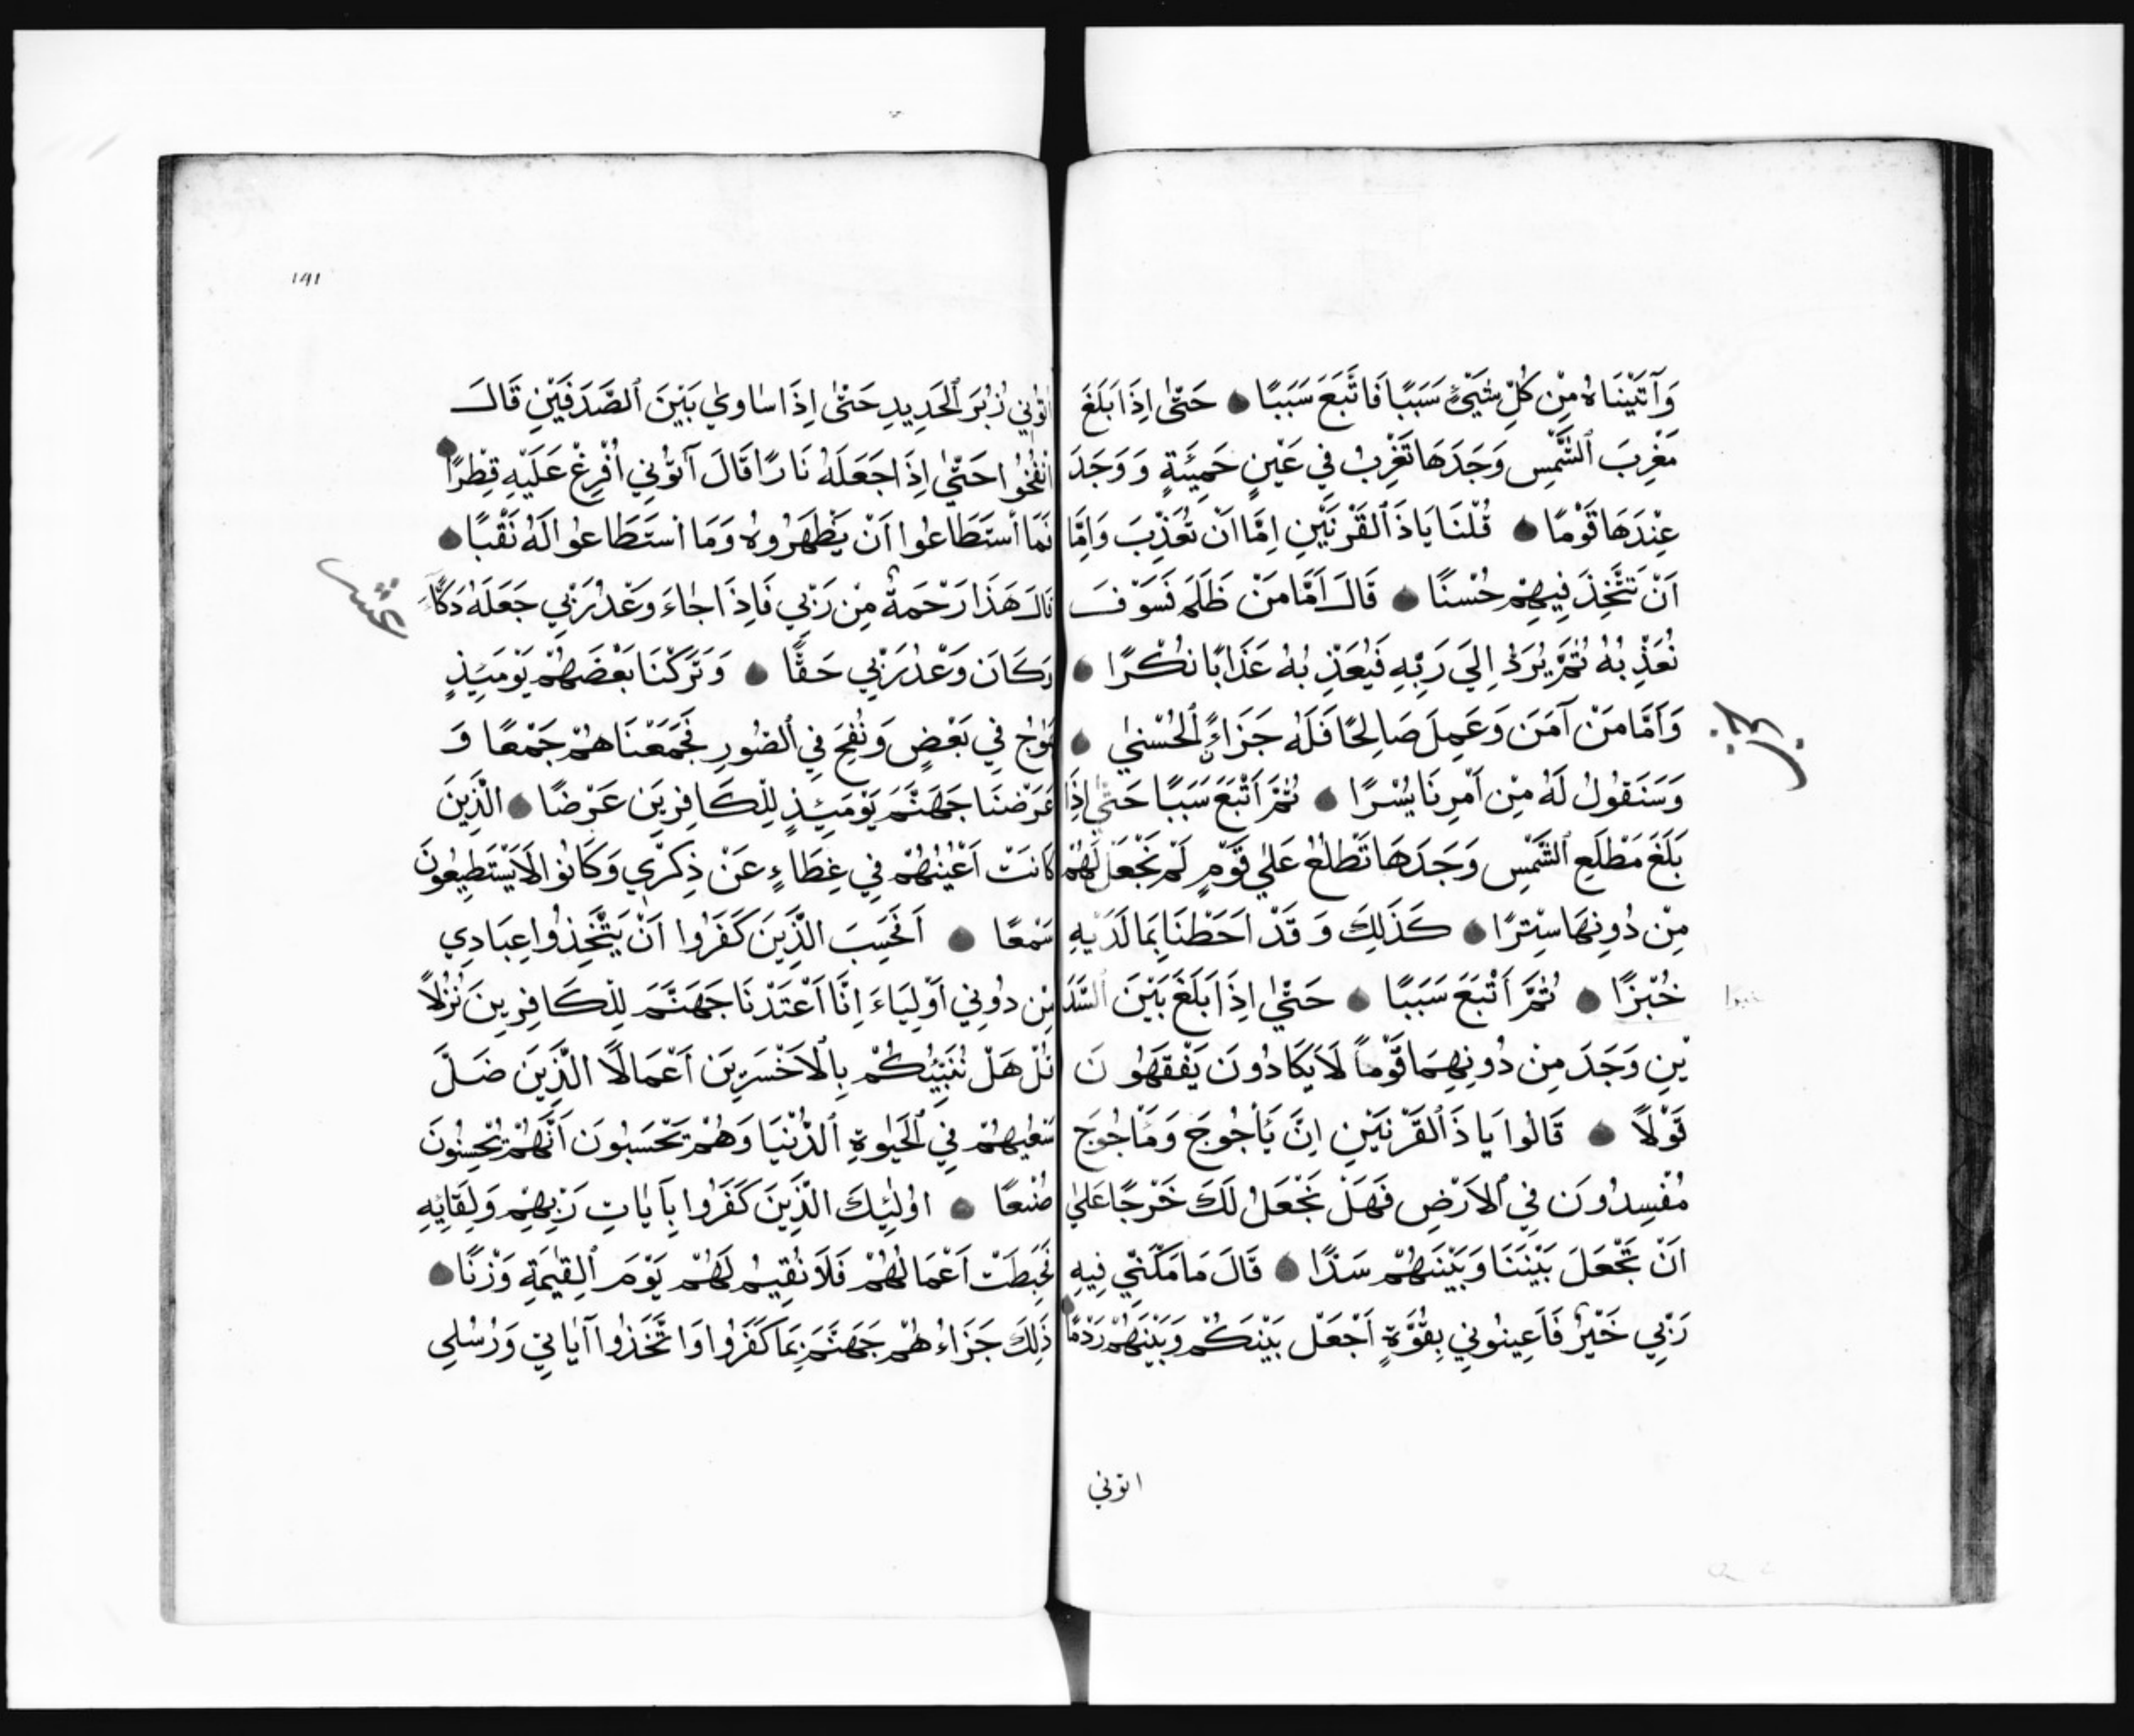 وَآتَيْنَاهُ مِنْ كُلِّ شَيْئٍ سَبَبًا فَاتَّبَعَ سَبَبًا حَتّٰى اِذَا بَلَغَ
مَغْرِبَ ٱلشَّمْسِ وَجَدَهَا تَغْرِبُ فِي عَيْنٍ حَمِئَةٍ وَوَجَدَ
عِنْدَهَا قَوْمًا قُلْنَا يَاذَ ٱلقَرْنَيْنِ اِمَّا اَنْ تُعَذِّبَ وَاِمَّا
اَنْ تَتَّخِذَ فِيهِمْ حُسْنًا قَالَ اَمَّا مَنْ ظَلَمَ فَسَوْفَ
نُعَذِّبُهُ ثُمَّ يُرَدُّ اِلَى رَبِّهِ فَيُعَذِّبُهُ عَذَابًا نُكْرًا
وَاَمَّا مَنْ آمَنَ وَعَمِلَ صَالِحًا فَلَهُ جَزَاءً ٱلحُسْنٰى
وَسَنَقُولُ لَهُ مِنْ اَمْرِنَا يُسْرًا ثُمَّ اَتْبَعَ سَبَبًا حَتّٰى اِذَا
بَلَغَ مَطْلَعِ ٱلشَّمْسِ وَجَدَهَا تَطْلُعُ عَلٰى قَوْمٍ لَمْ نَجْعَلْ لَهُمْ
مِنْ دُونِهَا سِتْرًا كَذَلِكَ وَقَدْ اَحَطْنَا بِمَا لَدَيْهِ
خُبْرًا ثُمَّ اَتْبَعَ سَبَبًا حَتّٰى اِذَا بَلَغَ بَيْنَ ٱلسَّدَّ
يْنِ وَجَدَ مِنْ دُونِهِمَا قَوْمًا لَا يَكَادُونَ يَفْقَهُونَ
قَوْلًا قَالُوا يَا ذَ ٱلقَرْنَيْنِ اِنَّ يَأْجُوجَ وَمَأْجُوجَ
مُفْسِدُونَ فِي ٱلاَرْضِ فَهَلْ نَجْعَلُ لَكَ خَرْجًا عَلٰى
اَنْ تَجْعَلَ بَيْنَنَا وَبَيْنَهُمْ سَدًّا قَالَ مَا مَكَّنِّي فِيهِ
رَبِّي خَيْرٌ فَاَعِينُونِي بِقُوَّةٍ اَجْعَلْ بَيْنَكُمْ وَبَيْنَهُمْ رَدْمًا
اتوني
حزب
خبرا
١٩١
اتُونِي زُبُرَ ٱلحَدِيدِ حَتّٰى اِذَا سَاوٰي بَيْنَ ٱلصَّدَفَيْنِ قَالَ
انْفُخُوا حَتّٰى اِذَا جَعَلَهُ نَارًا قَالَ آتُونِي اُفْرِغْ عَلَيْهِ قِطْرًا
فَمَا ٱسْتَطَاعُوا اَنْ يَظْهَرُوهُ وَمَا اسْتَطَاعُوا لَهُ نَقْبًا
قَالَ هَذَا رَحْمَةٌ مِنْ رَبِّي فَاِذَا جَاءَ وَعْدُ رَبِّي جَعَلَهُ دَكَّاءَ
وَكَانَ وَعْدُ رَبِّي حَقًّا وَتَرَكْنَا بَعْضَهُمْ يَوْمَئِذٍ
يَمُوجُ فِي بَعْضٍ وَنُفِخَ فِي ٱلصُّورِ فَجَمَعْنَاهُمْ جَمْعًا وَ
عَرَضْنَا جَهَنَّمَ يَوْمَئِذٍ لِلْكَافِرِينَ عَرْضًا الَّذِينَ
كَانَتْ اَعْيُنُهُمْ فِي غِطَاءٍ عَنْ ذِكْرِي وَكَانُوا لَا يَسْتَطِيعُونَ
سَمْعًا اَفَحَسِبَ الَّذِينَ كَفَرُوا اَنْ يَتَّخِذُوا عِبَادِي
مِنْ دُونِي اَوْلِيَاءَ اِنَّا اَعْتَدْنَا جَهَنَّمَ لِلْكَافِرِينَ نُزُلًا
قُلْ هَلْ نُنَبِّئُكُمْ بِالْاَخْسَرِينَ اَعْمَالًا الَّذِينَ ضَلَّ
سَعْيُهُمْ فِي ٱلحَيٰوةِ ٱلدُّنْيَا وَهُمْ يَحْسَبُونَ اَنَّهُمْ يُحْسِنُونَ
صُنْعًا اوُلٰئِكَ الَّذِينَ كَفَرُوا بِآيَاتِ رَبِّهِمْ وَلِقَائِهِ
فَحَبِطَتْ اَعْمَالُهُمْ فَلَا نُقِيمُ لَهُمْ يَوْمَ ٱلقِيٰمَةِ وَزْنًا
ذَلِكَ جَزَاءُهُمْ جَهَنَّمَ بِمَا كَفَرُوا وَاتَّخَذُوا آيَاتِي وَرُسُلِي
عشر